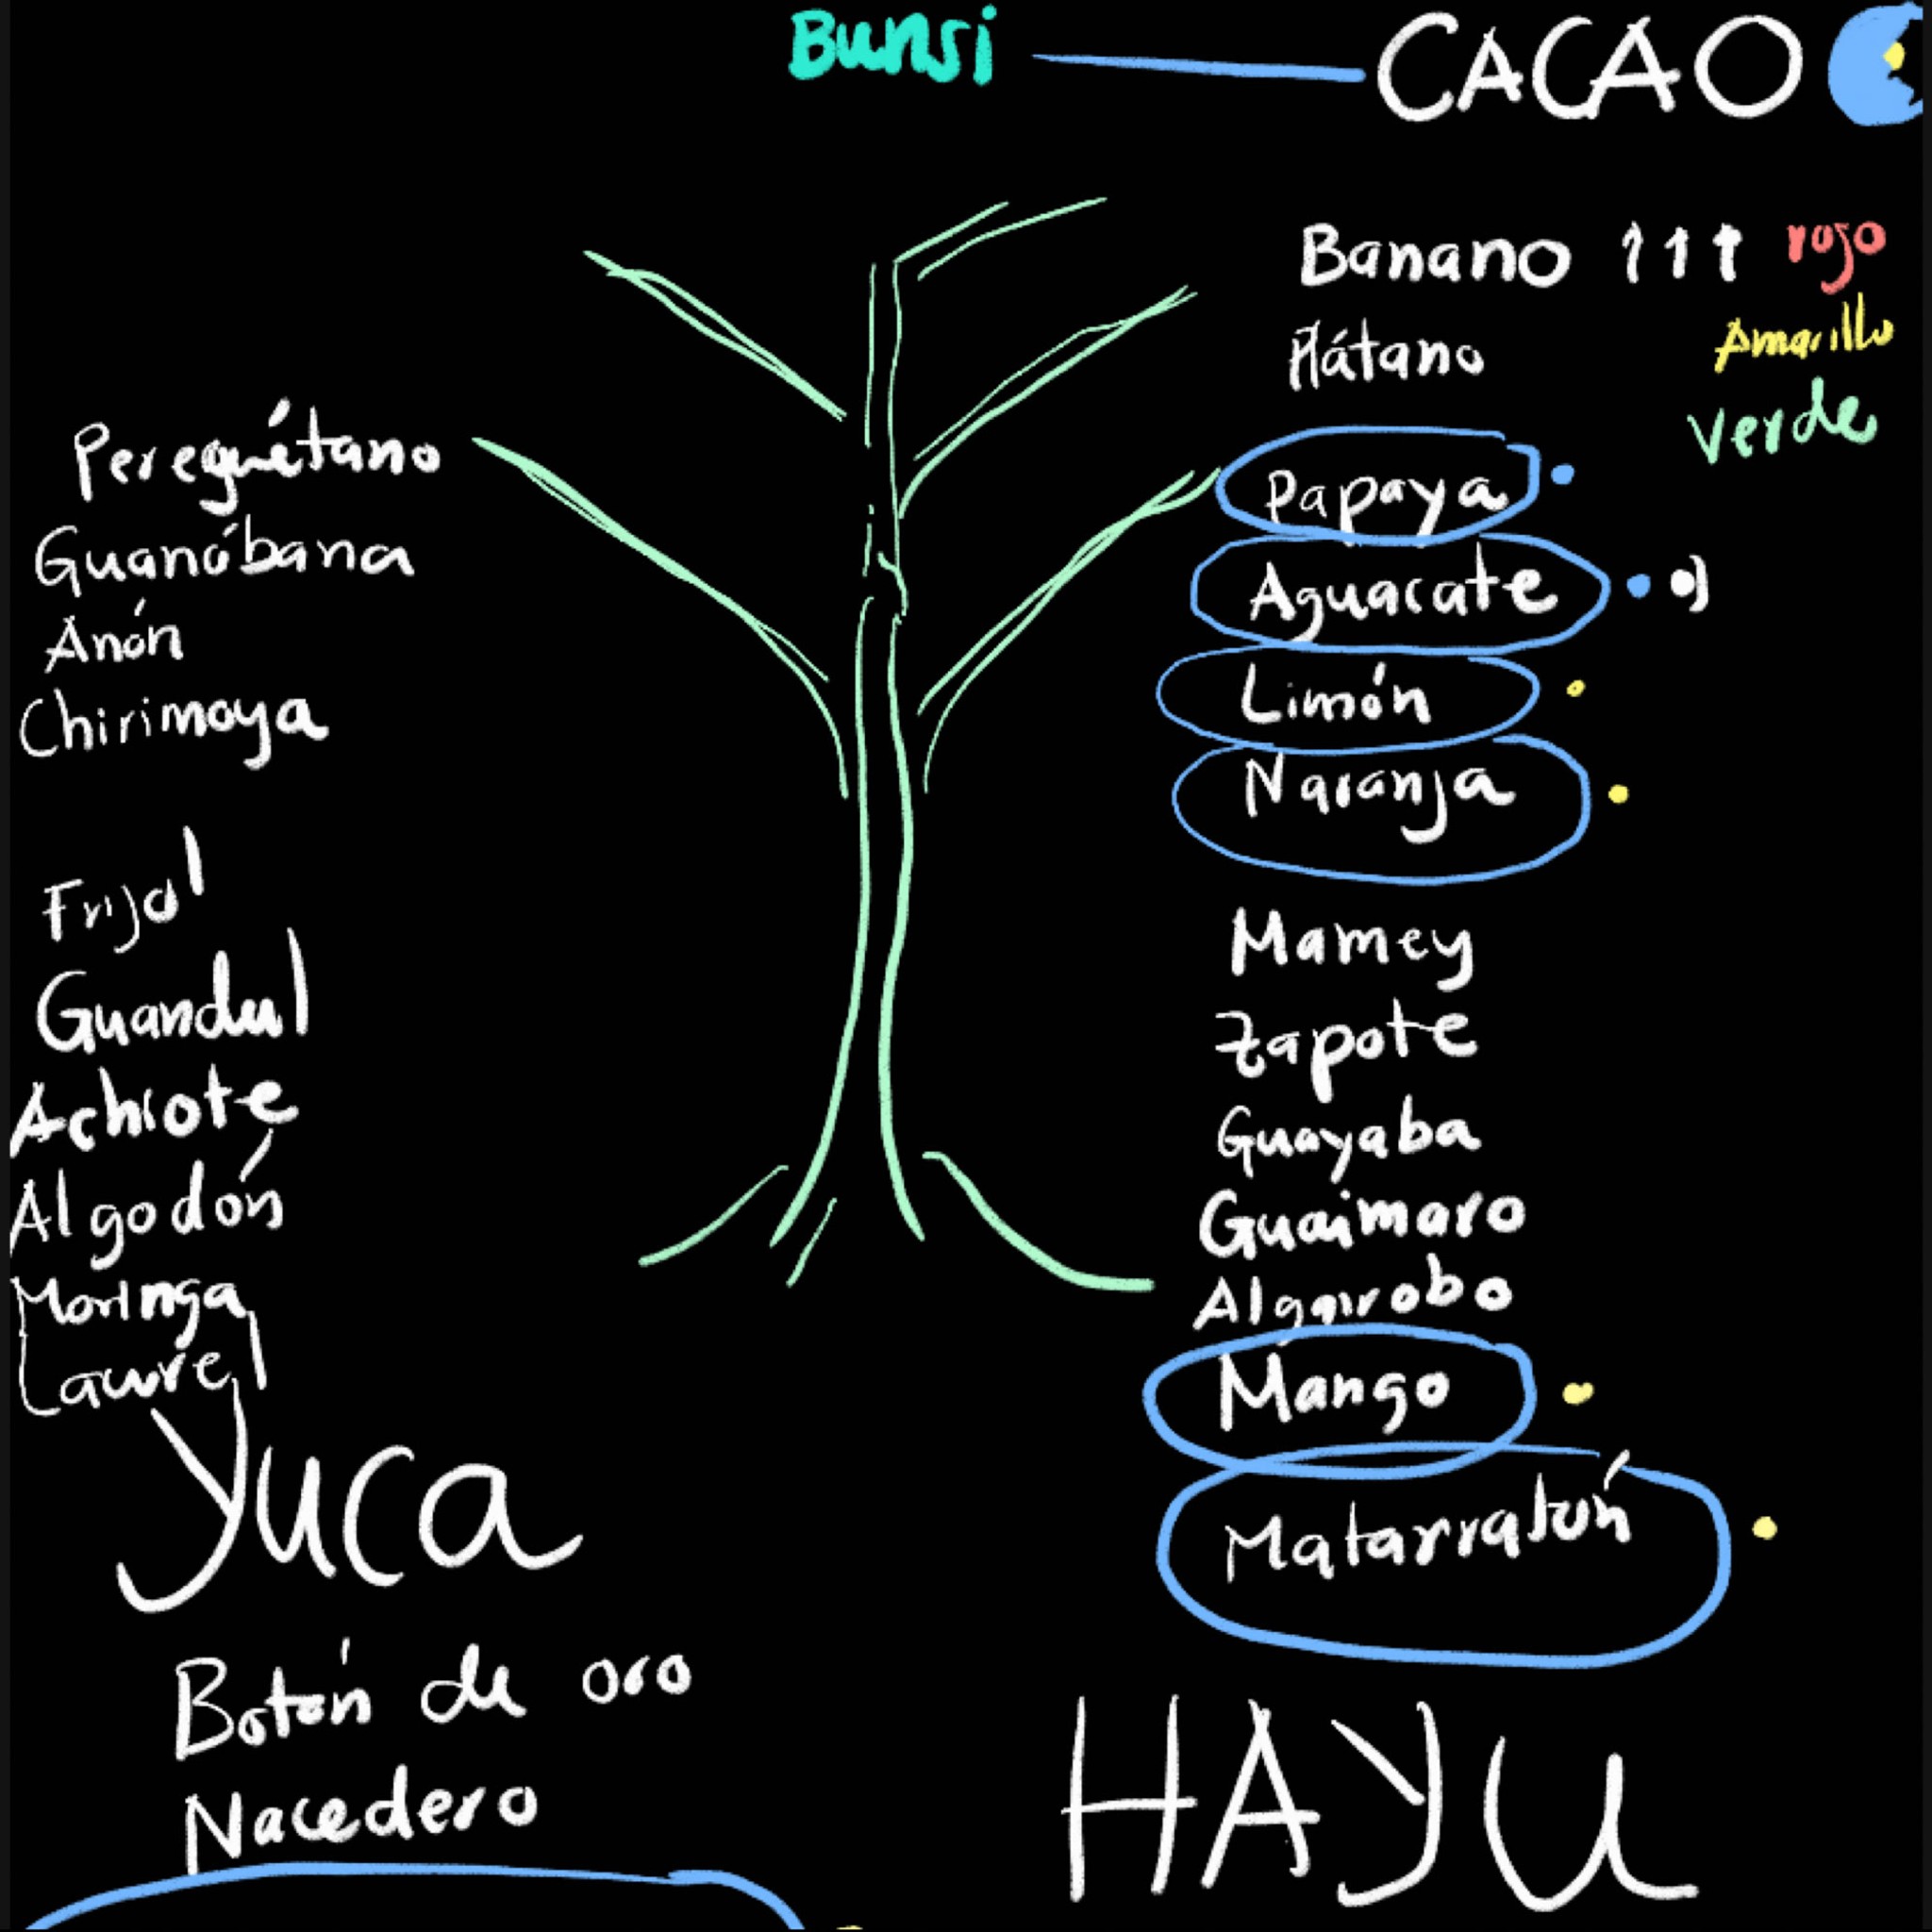 Bunsi CACAO
Banano ↑↑↑ rojo
Plátano Amarillo
verde
Papaya
Aguacate
Limón
Naranja
Mamey
Zapote
Guayaba
Guaimaro
Algarrobo
Mango
Matarratón
HAYU
Pereguétano
Guanábana
Anón
Chirimoya
Frijol
Guandul
Achiote
Algodón
Moringa
Laurel
Yuca
Botón de oro
Nacedero